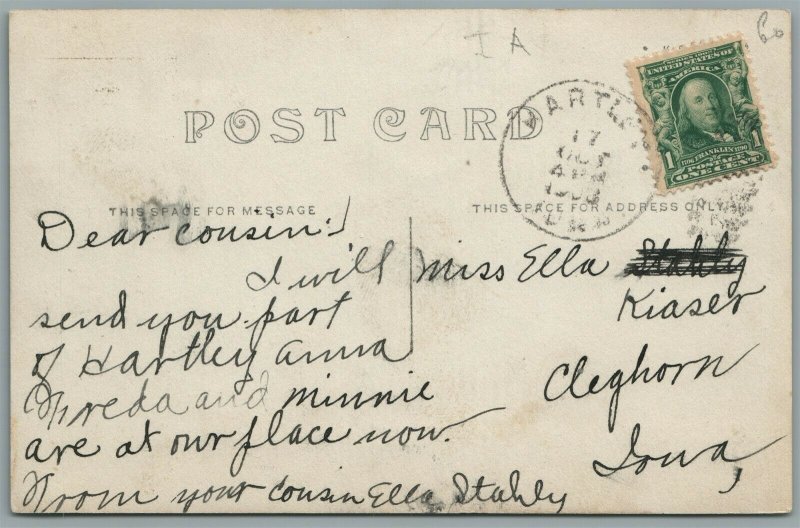 IA
60
POST CARD
THIS SPACE FOR MESSAGE
THIS SPACE FOR ADDRESS ONLY
HARTLEY
17
OCT
SERIES 1902
UNITED STATES OF
AMERICA
1706 FRANKLIN 1790
POSTAGE
1 ONE CENT 1
Dear cousin:
I will
send you part
of Hartley anna
Freda and minnie
are at our place now.
From your cousin Ella Stahly
Miss Ella Stahly
Kiaser
Cleghorn
Iowa,